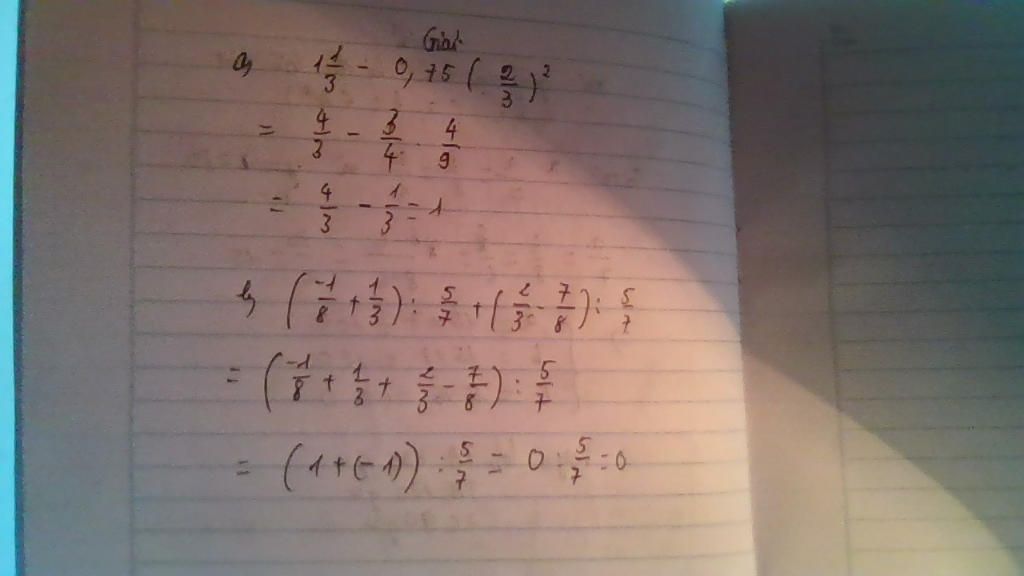 Giải
a, 1 1/3 - 0,75 (2/3)²
= 4/3 - 3/4 . 4/9
= 4/3 - 1/3 = 1
b, (-1/8 + 1/3) : 5/7 + (2/3 - 7/8) : 5/7
= (-1/8 + 1/3 + 2/3 - 7/8) : 5/7
= (1 + (-1)) : 5/7 = 0 : 5/7 = 0